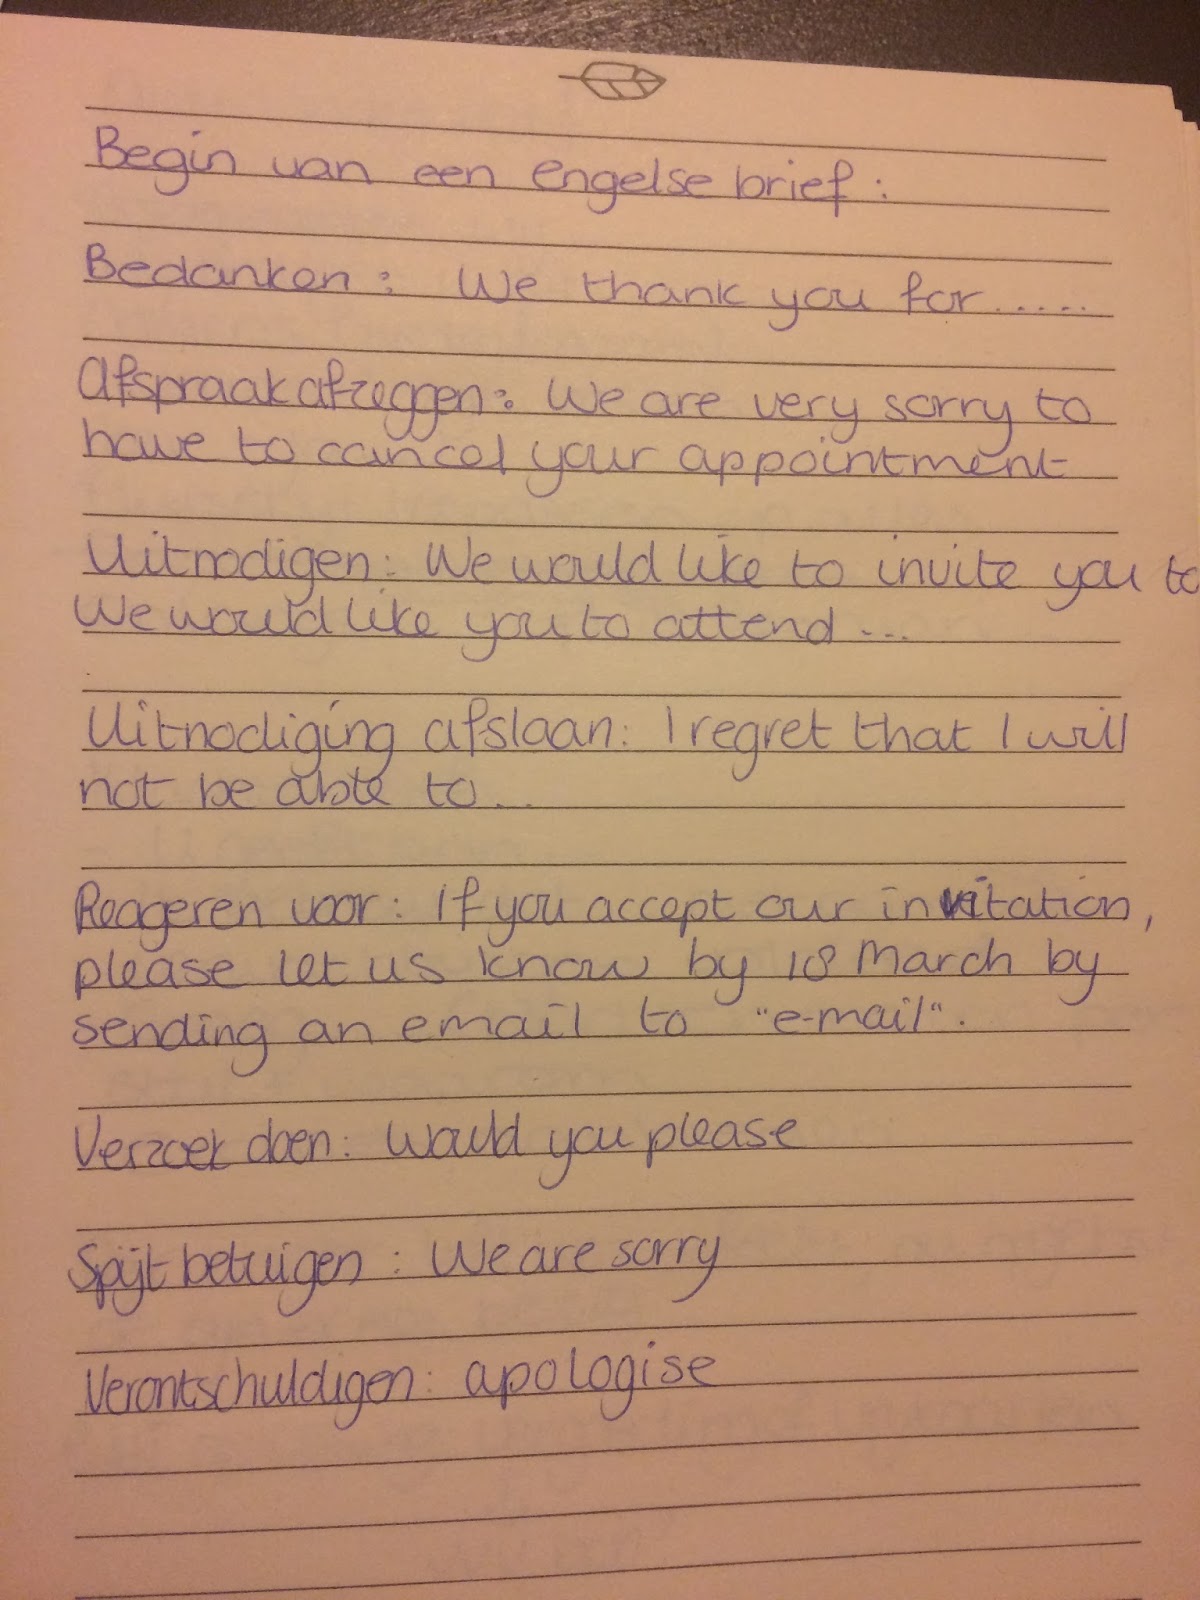 Begin van een engelse brief:
Bedanken: We thank you for.....
Afspraak afzeggen: We are very sorry to
have to cancel your appointment
Uitnodigen: We would like to invite you to
We would like you to attend ...
Uitnodiging afslaan: I regret that I will
not be able to...
Reageren voor: If you accept our invitation,
please let us know by 18 March by
sending an email to "e-mail".
Verzoek doen: Would you please
Spijt betuigen: We are sorry
Verontschuldigen: apologise